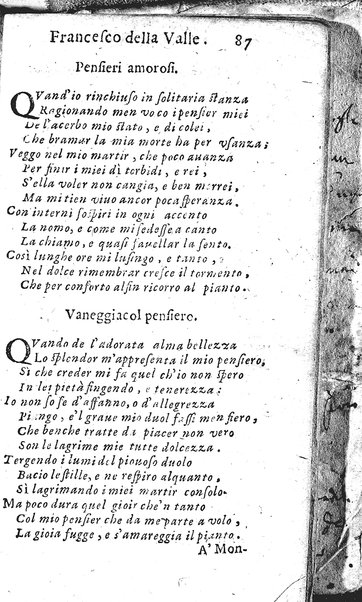 Francesco della Valle. 87
Pensieri amorosi.
QVand'io rinchiuso in solitaria stanza
Ragionando men vo co i pensier miei
De l'acerbo mio stato, e di colei,
Che bramar la mia morte ha per vsanza;
Veggo nel mio martir, che poco auanza
Per finir i miei dì torbidi, e rei,
S'ella voler non cangia, e ben morrei,
Ma mi tien viuo ancor poca speranza.
Con interni sospiri in ogni accento
La nomo, e come mi sedesse a canto
La chiamo, e quasi fauellar la sento.
Così lunghe ore mi lusingo, e tanto,
Nel dolce rimembrar cresce il tormento,
Che per conforto alfin ricorro al pianto.
Vaneggia col pensiero.
QVando de l'adorata alma bellezza
Lo splendor m'appresenta il mio pensiero,
Sì che creder mi fa quel ch'io non spero
In lei pietà fingendo, e tenerezza:
Io non so se d'affanno, o d'allegrezza
Piango, e'l graue mio duol fassi men fiero,
Che benche tratte di piacer non vero
Son le lagrime mie tutte dolcezza.
Tergendo i lumi del piouoso duolo
Bacio le stille, e ne respiro alquanto,
Sì lagrimando i miei martir consolo.
Ma poco dura quel gioir che'n tanto
Col mio pensier che da me parte a volo,
La gioia fugge, e s'amareggia il pianto.
A' Mon-